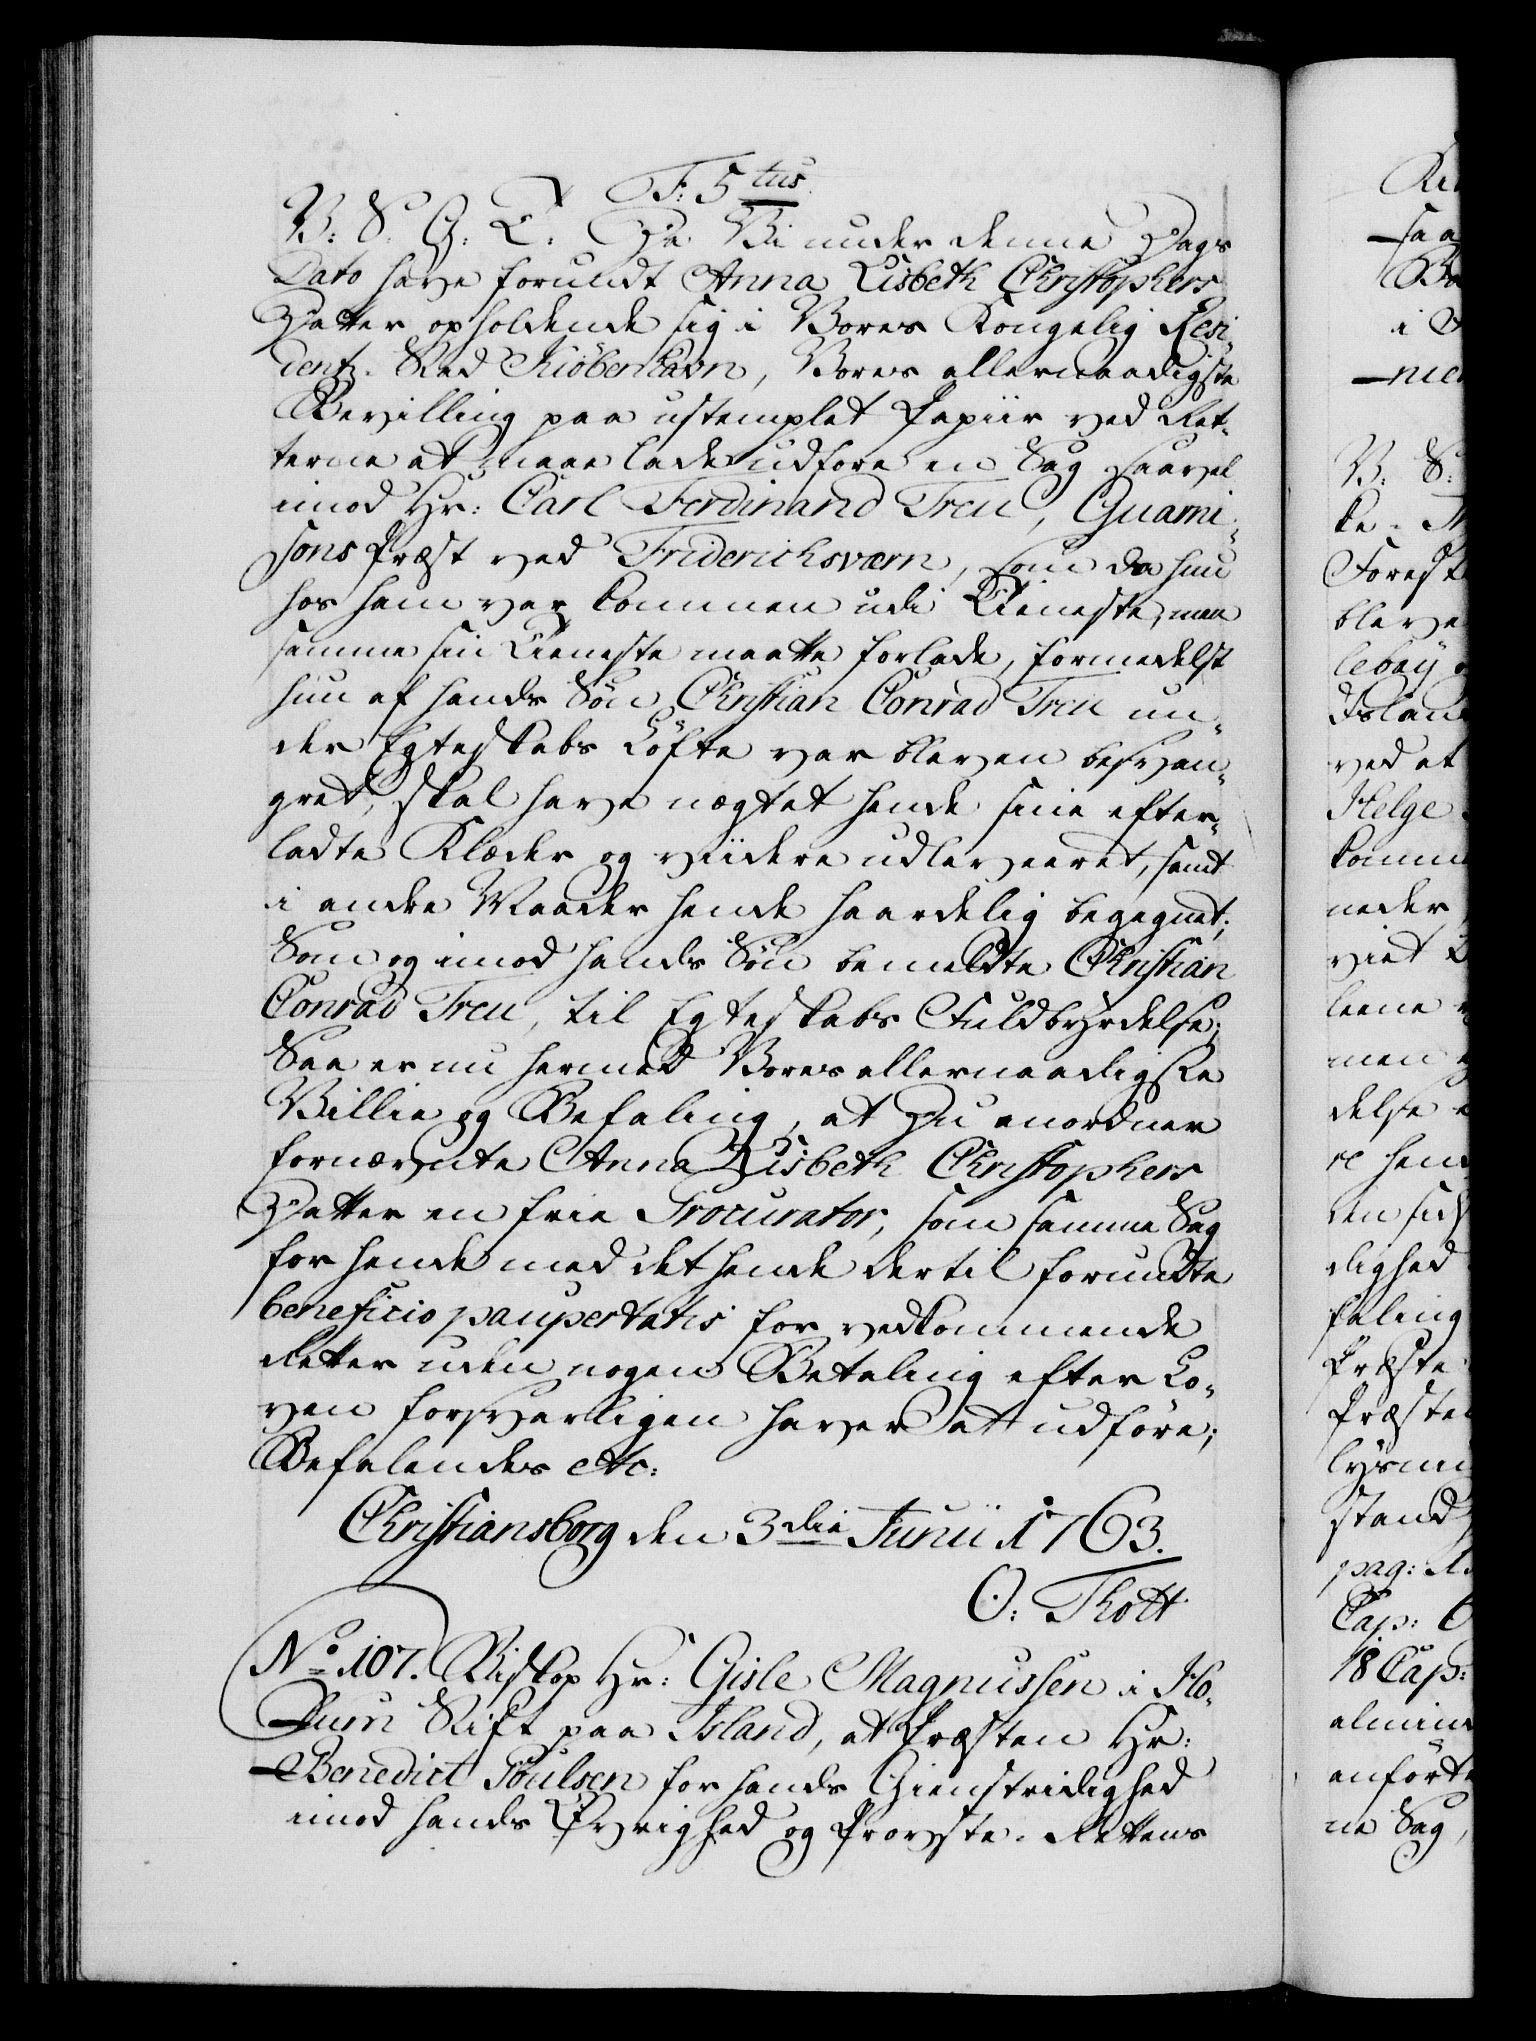 F: 5tus
V: S: G: T: Da Vi under denne Dags
Dato have forundt Anna Lisbeth Christophers
Datter opholdende sig i Vores Kongelig Resi-
dentz-Stad Kiöbenhavn, Vores allernaadigste
Bevilling paa ustemplet Papiir ved Ret-
terne at maae lade udføre en Sag saavel
imod Hr: Carl Ferdinand Treu, Guarni-
sons Præst ved Friderichsværn, som da hun
hos ham var kommen udi Tieneste, men
samme sin Tieneste maatte forlade, formedelst
hun af hands Søn Christian Conrad Treu un-
der Egteskabs Löfte var bleven besvan-
gret, skal have nægtet hende sine efter-
ladte Klæder og viidere udleveeret, samt
i andre Maader hende haardelig begegnet;
Som og imod hands Sön bemeldte Christian
Conrad Treu, til Egteskabs Fuldbyrdelse;
Saa er nu hermed Vores allernaadigste
Villie og Befaling, at Du anordner
fornævnte Anna Lisbeth Christophers
Datter en frie Procurator, som samme Sag
for hende med det hende dertil forundte
beneficio paupertatis for vedkommende
Retter uden nogen Betaling efter Lo-
ven forsvarligen haver at udføre;
Befalendes etc:
Christiansborg den 3die Junii 1763.
O: Thott
No 107. Biskop Hr: Gisle Magnussen i Ho-
lum Stift paa Island, at Præsten Hr:
Benedict Poulsen for hands Gienstridighed
imod hands Øvrighed og Provste-Rettens